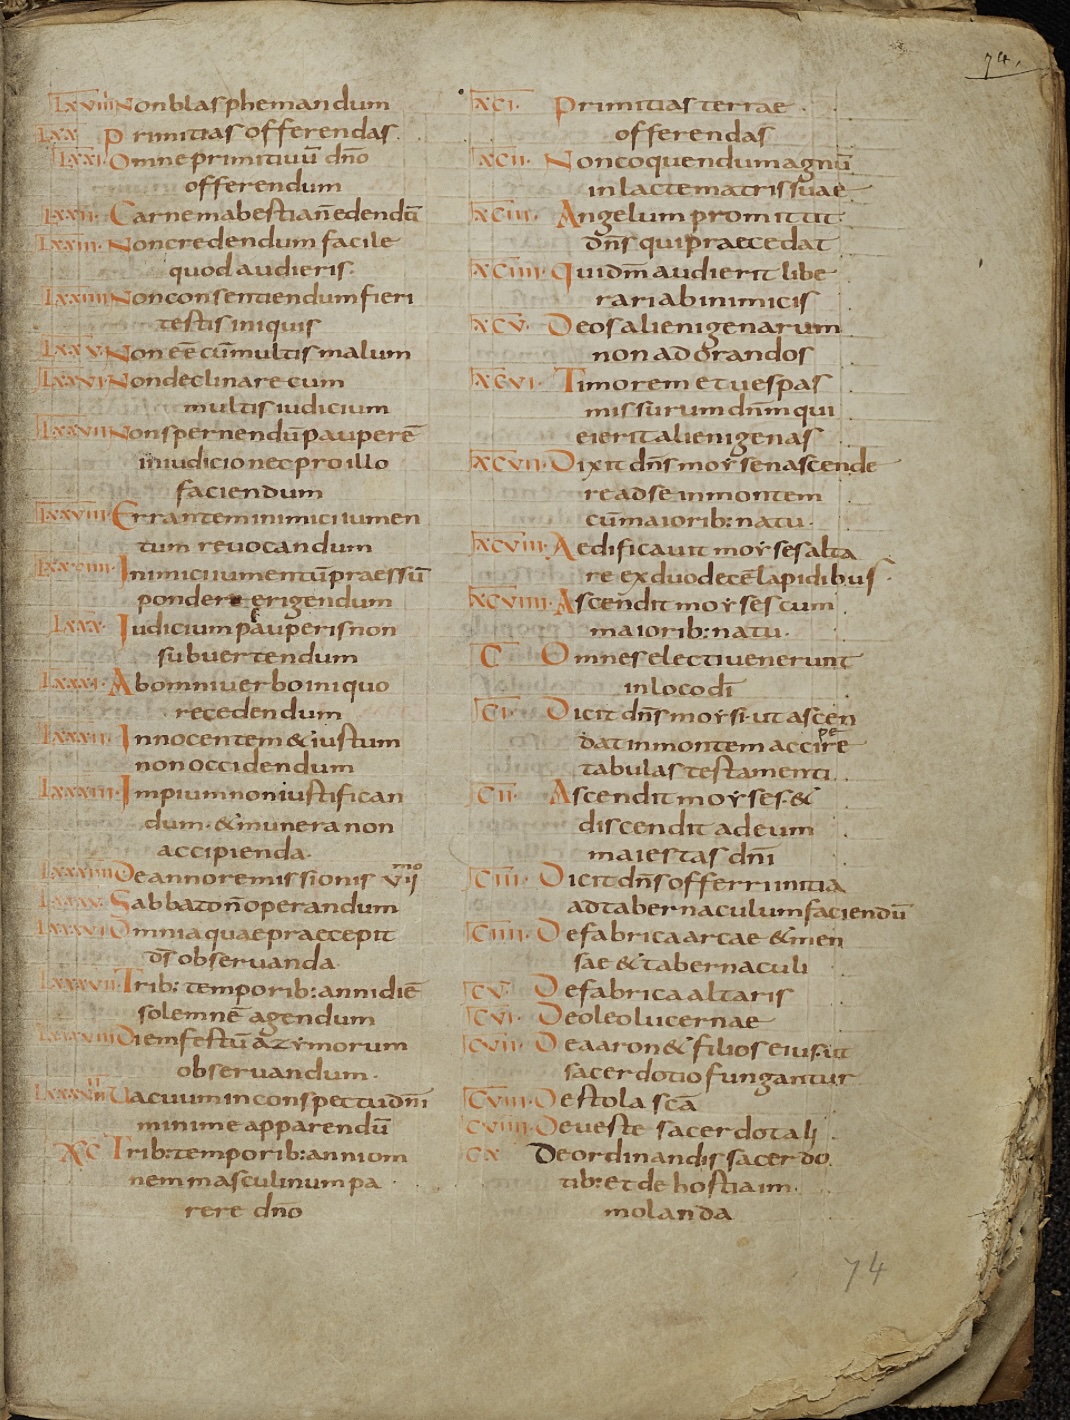 74.
LXVIIII Non blasphemandum
LXX Primitias offerendas.
LXXI Omne primitiuū dn̄o
offerendum
LXXII. Carnem a bestia n̄ edendū
LXXIII. Non credendum facile
quod audieris.
LXXIIII Non consentiendum fieri
testis iniquis
LXXV. Non eē cū multis malum
LXXVI Non declinare cum
multis iudicium
LXXVII Non spernendū pauperē
in iudicio nec pro illo
faciendum
LXXVIII Errantem inimici iumen
tum reuocandum
LXXVIIII Inimici iumentū praessū
pondere erigendum
LXXX. Iudicium pauperis non
subuertendum
LXXXI. Ab omni uerbo iniquo
recedendum
LXXXII. Innocentem & iustum
non occidendum
LXXXIII. Impium non iustifican
dum. & munera non
accipienda.
LXXXIIII De anno remissionis VIJ mo
LXXXV. Sabbato n̄ operandum
LXXXVI Omnia quae praecepit
ds̄ obseruanda.
LXXXVII. Trib: temporib: anni diē
solemnē agendum
LXXXVIII Diem festū azẏmorum
obseruandum.
LXXXVIIII Uacuum in conspectu dn̄i
minime apparendū
XC Trib: temporib: anni om
nem masculinum pa
rere dn̄o
XCI. Primitias terrae
offerendas
XCII. Non coquendum agnū
in lacte matris suae
XCIII. Angelum promittit
dn̄s qui praecedat
XCIIII. Quid m̄ audierit libe
rari ab inimicis
XCV. Deos alienigenarum
non adorandos
XCVI. Timorem et uespas
missurum dn̄m qui
eierit alienigenas
XCVII. Dixit dn̄s moẏsen ascende
re ad se in montem
cū maiorib: natu.
XCVIII. Aedificauit moẏses alta
re ex duodecē lapidibus.
XCVIIII. Ascendit moẏses cum
maiorib: natu.
C Omnes electi uenerunt
in loco dī
CI. Dicit dn̄s moẏsi. ut ascen
dat in montem accipere
tabulas testamenti
CII. Ascendit moẏses. &
discendit ad eum
maiestas dn̄i
CIII. Dicit dn̄s offerri initia
ad tabernaculum faciendū
CIIII. De fabrica arcae & men
sae & tabernaculi
CV. De fabrica altaris
CVI. De oleo lucernae
CVII. De aaron & filios eius. ut
sacerdotio fungantur
CVIII. De stola scā
CVIIII. De ueste sacerdotali
CX De ordinandis sacerdo
tib: et de hostia im
molanda
74